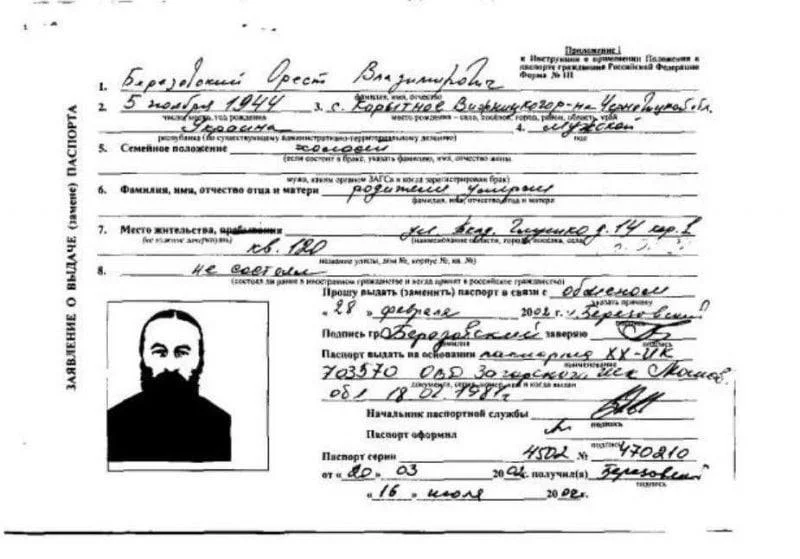 Приложение 1
к Инструкции о применении Положения о
паспорте гражданина Российской Федерации
Форма № 1П
ЗАЯВЛЕНИЕ О ВЫДАЧЕ (замене) ПАСПОРТА
1. Березовский Орест Владимирович
фамилия, имя, отчество
2. 5 ноября 1944 3. с. Корытное Вижницкого р-на Черновицкой обл.
число, месяц, год рождения место рождения – село, посёлок, город, район, область, край
Украина 4. мужской
республика (по существующему административно-территориальному делению) пол
5. Семейное положение холост
(если состоит в браке, указать фамилию, имя, отчество жены
мужа, каким органом ЗАГСа и когда зарегистрирован брак)
6. Фамилия, имя, отчество отца и матери родители умерли
фамилия, имя, отчество отца и матери
7. Место жительства, пребывания ул. Акад. Глушко д. 14 кор.
(не нужное зачеркнуть) (наименование области, города, посёлка, села)
кв. 120
название улицы, дом №, корпус №, кв. №)
8. не состоял
(состоял ли ранее в иностранном гражданстве и когда принят в российское гражданство)
Прошу выдать (заменить) паспорт в связи с обменом
указать причину
« 28 » февраля 2002 г. Березовский
Подпись гр. Березовский заверяю
фамилия подпись
Паспорт выдать на основании паспорта XX-ИК
наименование
703570 ОВД Загорского Моск.
документа, серия, номер, кем и когда выдан
обл 18.01.1981г.
Начальник паспортной службы
подпись
Паспорт оформил
подпись
Паспорт серии 4502 № 470210
от « 20 » 03 2002 г. получил(а) Березовский
подпись
« 16 » июля 2002г.